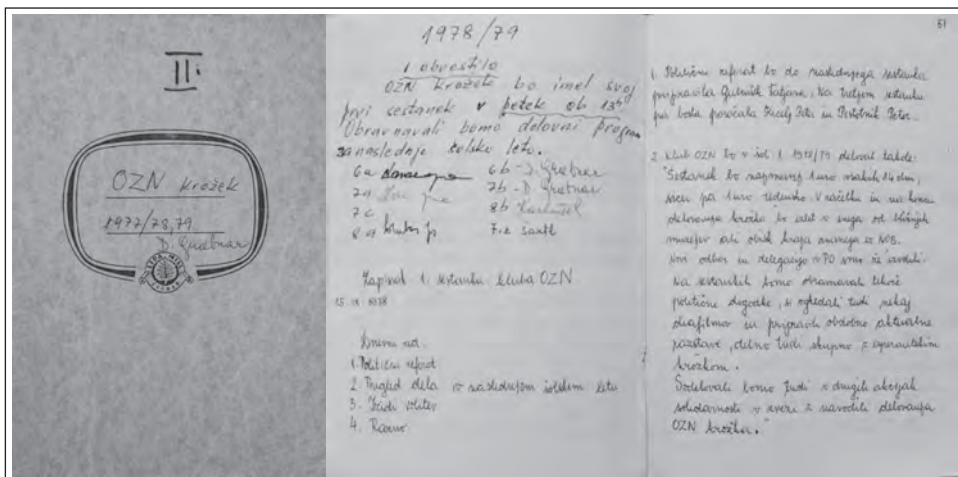 II.
OZN krožek
1977/78, 79
D. Grabnar
LEPA MISEL
1978/79
1. obvestilo
OZN krožek bo imel svoj
prvi sestanek v petek ob 13h
Obravnavali bomo delovni program
za naslednje šolsko leto.
6a
6b - D. Grabnar
7a
7b - D. Grabnar
7c
8b
8a
7.c Šantl
Zapisnik 1. sestanka kluba OZN
15. IX. 1978
Dnevni red:
1. Politični referat
2. Pregled dela v naslednjem šolskem letu
3. Izidi volitev
4. Razno
51
1. Politični referat bo do naslednjega sestanka
pripravila Gutnik Tatjana. Na tretjem sestanku
pa bosta poročala in Peter.
2. Klub OZN bo v šol. l. 1978/79 deloval takole:
"Sestanek bo najmanj 1 uro vsakih 14 dni,
sicer pa 1 uro tedensko. V začetku in na koncu
delovanja krožka bo izlet v enega od bližnjih
muzejev ali obisk kraja znanega iz NOB.
Novi odbor in delegacijo v PO smo že izvolili.
Na sestankih bomo obravnavali tekoče
politične dogodke, si ogledali tudi nekaj
diafilmov in pripravili obdobno aktualne
razstave, delno tudi skupno z esperantskim
krožkom.
Sodelovali bomo tudi v drugih akcijah
solidarnosti v zvezi z navodili delovanja
OZN krožkov."